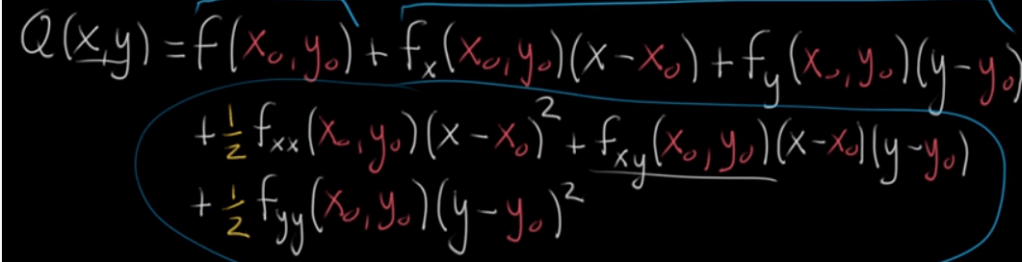 Q(x,y) = f(x₀,y₀) + fₓ(x₀,y₀)(x−x₀) + f_y(x₀,y₀)(y−y₀)
+ ½ fₓₓ(x₀,y₀)(x−x₀)² + f_xy(x₀,y₀)(x−x₀)(y−y₀)
+ ½ f_yy(x₀,y₀)(y−y₀)²